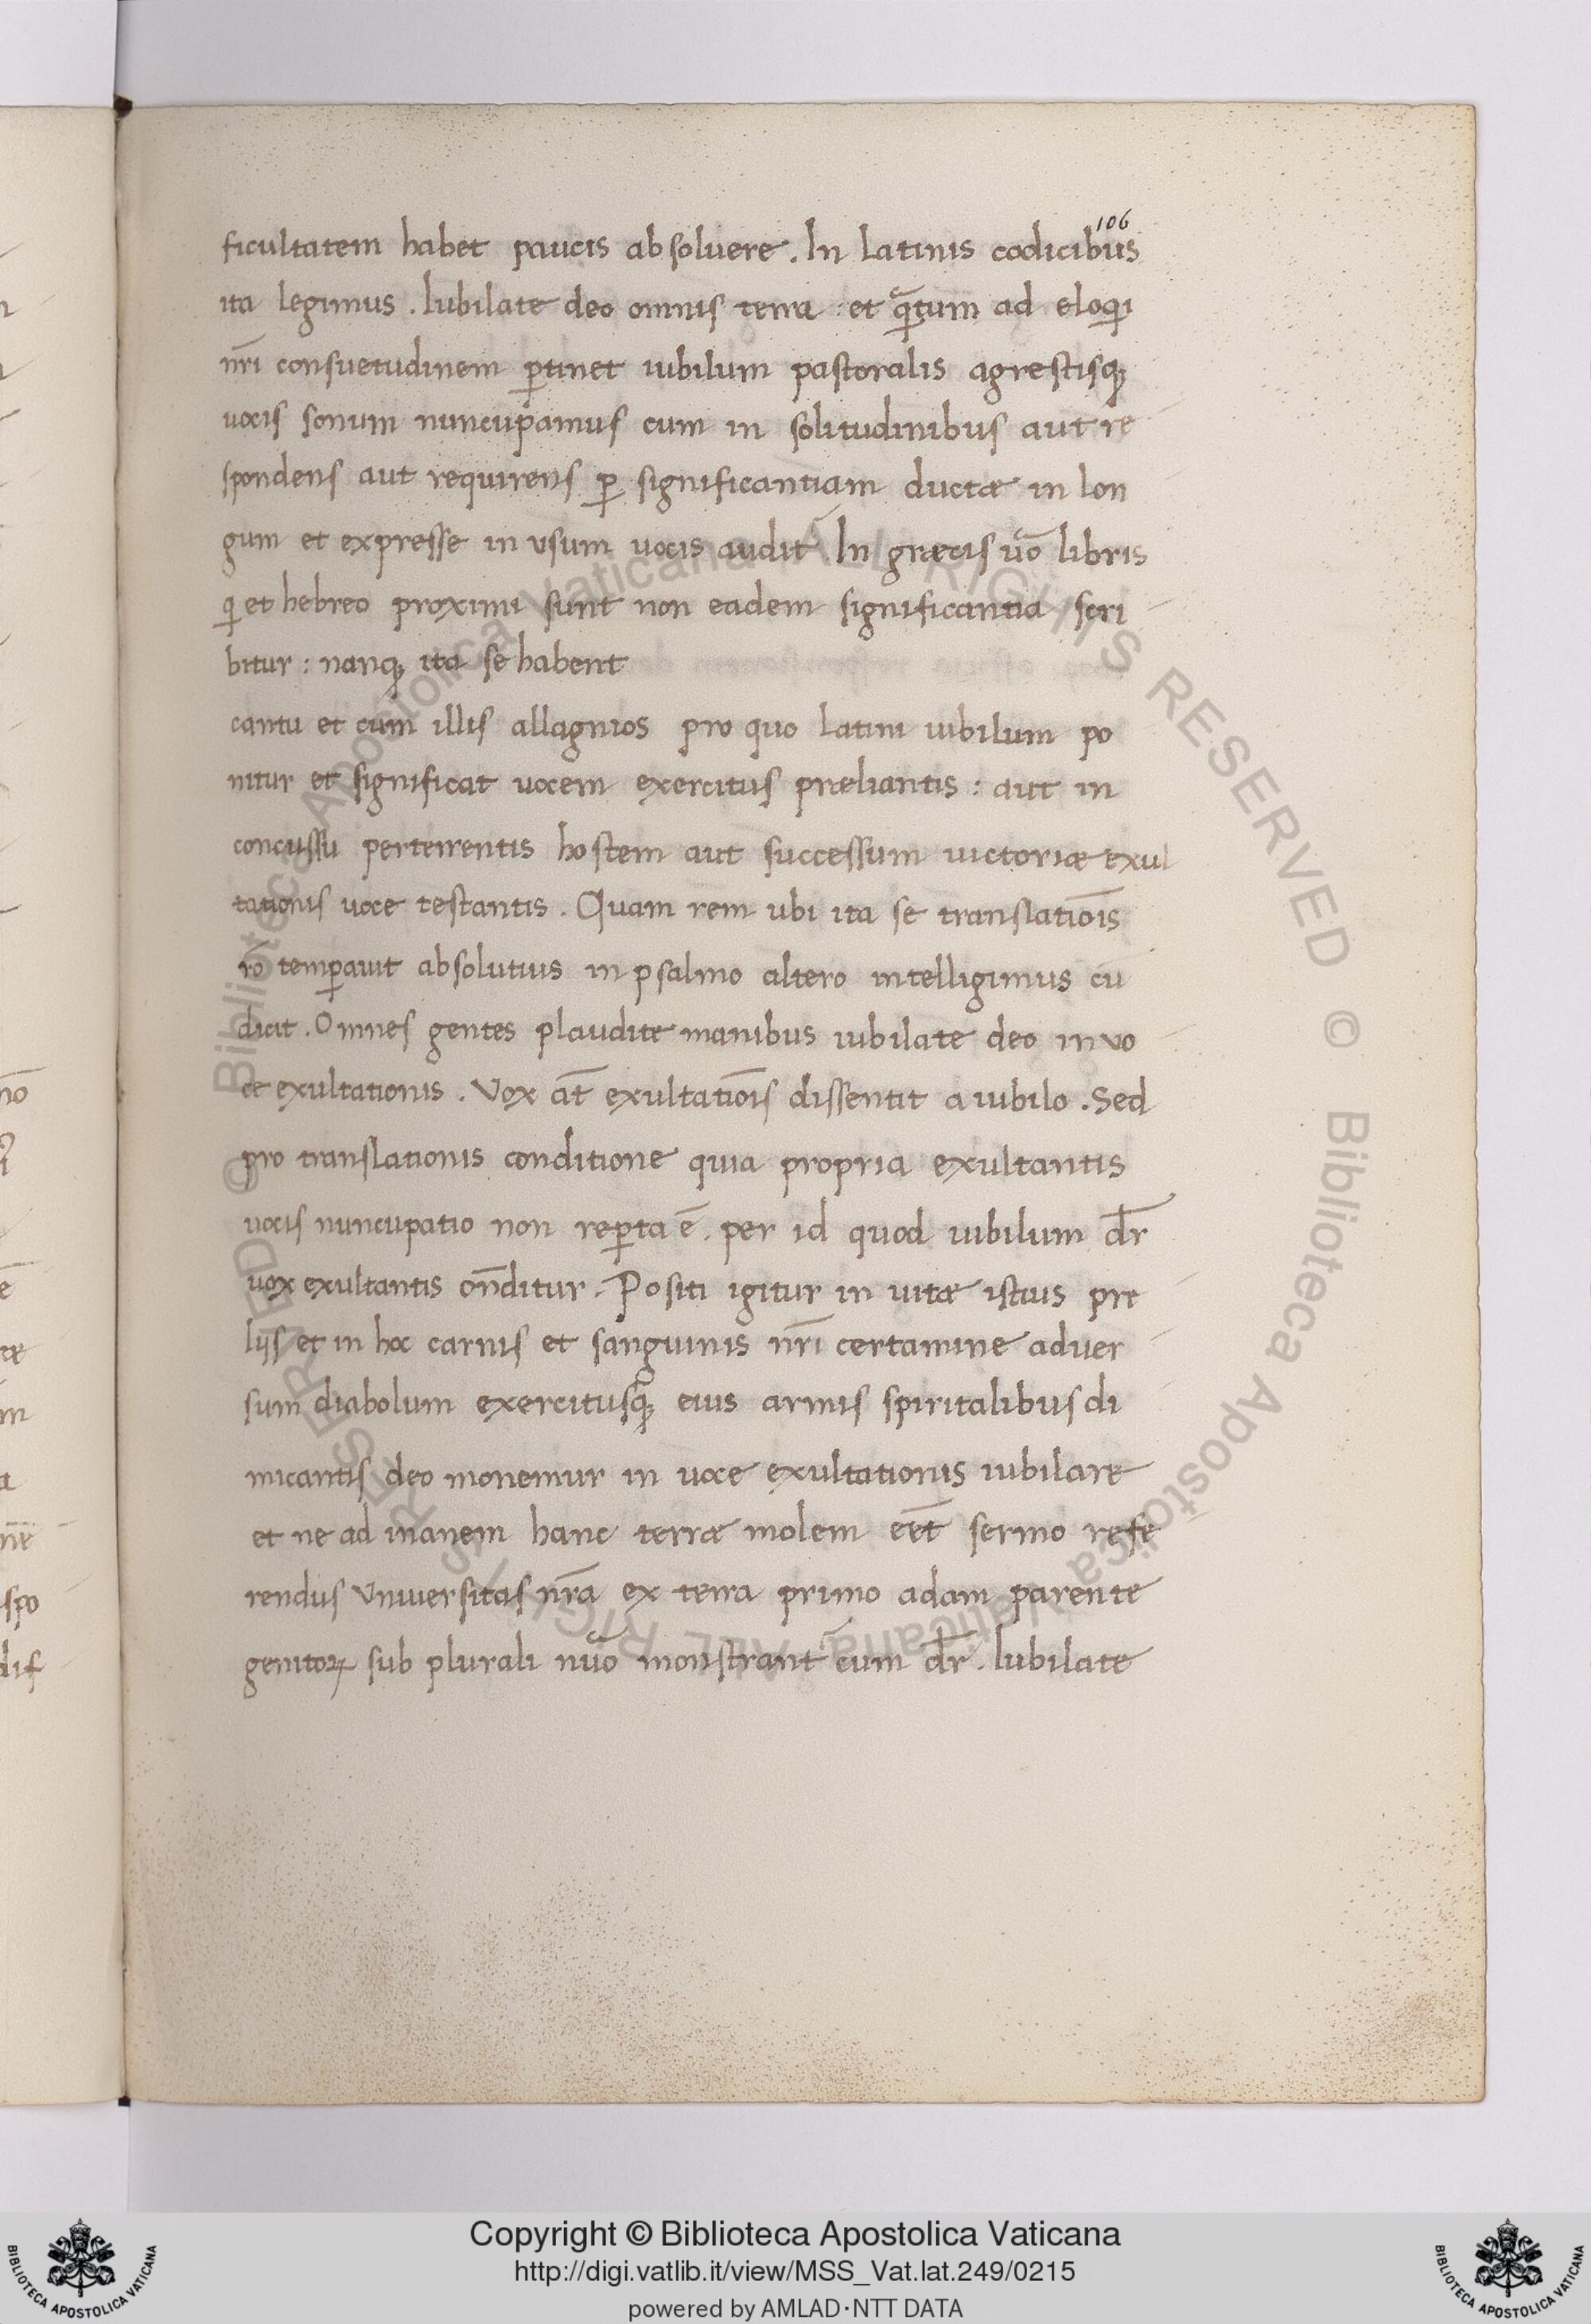 106
ficultatem habet paucis absoluere. In latinis codicibus
ita legimus. Iubilate deo omnis terra: et quãtum ad eloqui
nr̄i consuetudinem ꝑtinet iubilum pastoralis agrestisqꝫ
uocis sonum nuncupamus cum in solitudinibus aut re
spondens aut requirens ꝑ significantiam ductæ in lon
gum et expresse in usum uocis audit᷑. In græcis uō libris
qi et hebreo proximi sunt non eadem significantia scri
bitur: nanqꝫ ita se habent
cantu et cum illis allagnios pro quo latini iubilum po
nitur et significat uocem exercitus præliantis: aut in
concussu perterrentis hostem aut successum uictoriæ exul
tationis uoce testantis. Quam rem ubi ita se translatiōis
rō temꝑauit absolutius in psalmo altero intelligimus cū
dicit. Omnes gentes plaudite manibus iubilate deo in uo
ce exultationis. Vox at̄ exultatiōis dissentit a iubilo. Sed
pro translationis conditione quia propria exultantis
uocis nuncupatio non reꝑta ē. per id quod iubilum dr̄
uox exultantis on̄ditur. Positi igitur in uitæ istius pre
liis et in hoc carnis et sanguinis nr̄i certamine aduer
sum diabolum exercitusqꝫ eius armis spiritalibus di
micantis deo monemur in uoce exultationis iubilare
et ne ad inanem hanc terræ molem eēt sermo refe
rendus Vniuersitas nr̄a ex terra primo adam parente
genitoꝝ sub plurali nuō monstrant᷑ cum dr̄. Iubilate
Biblioteca Apostolica Vaticana ALL RIGHTS RESERVED © Biblioteca Apostolica Vaticana ALL RIGHTS RESERVED ©
BIBLIOTECA APOSTOLICA VATICANA
Copyright © Biblioteca Apostolica Vaticana
http://digi.vatlib.it/view/MSS_Vat.lat.249/0215
powered by AMLAD·NTT DATA
BIBLIOTECA APOSTOLICA VATICANA